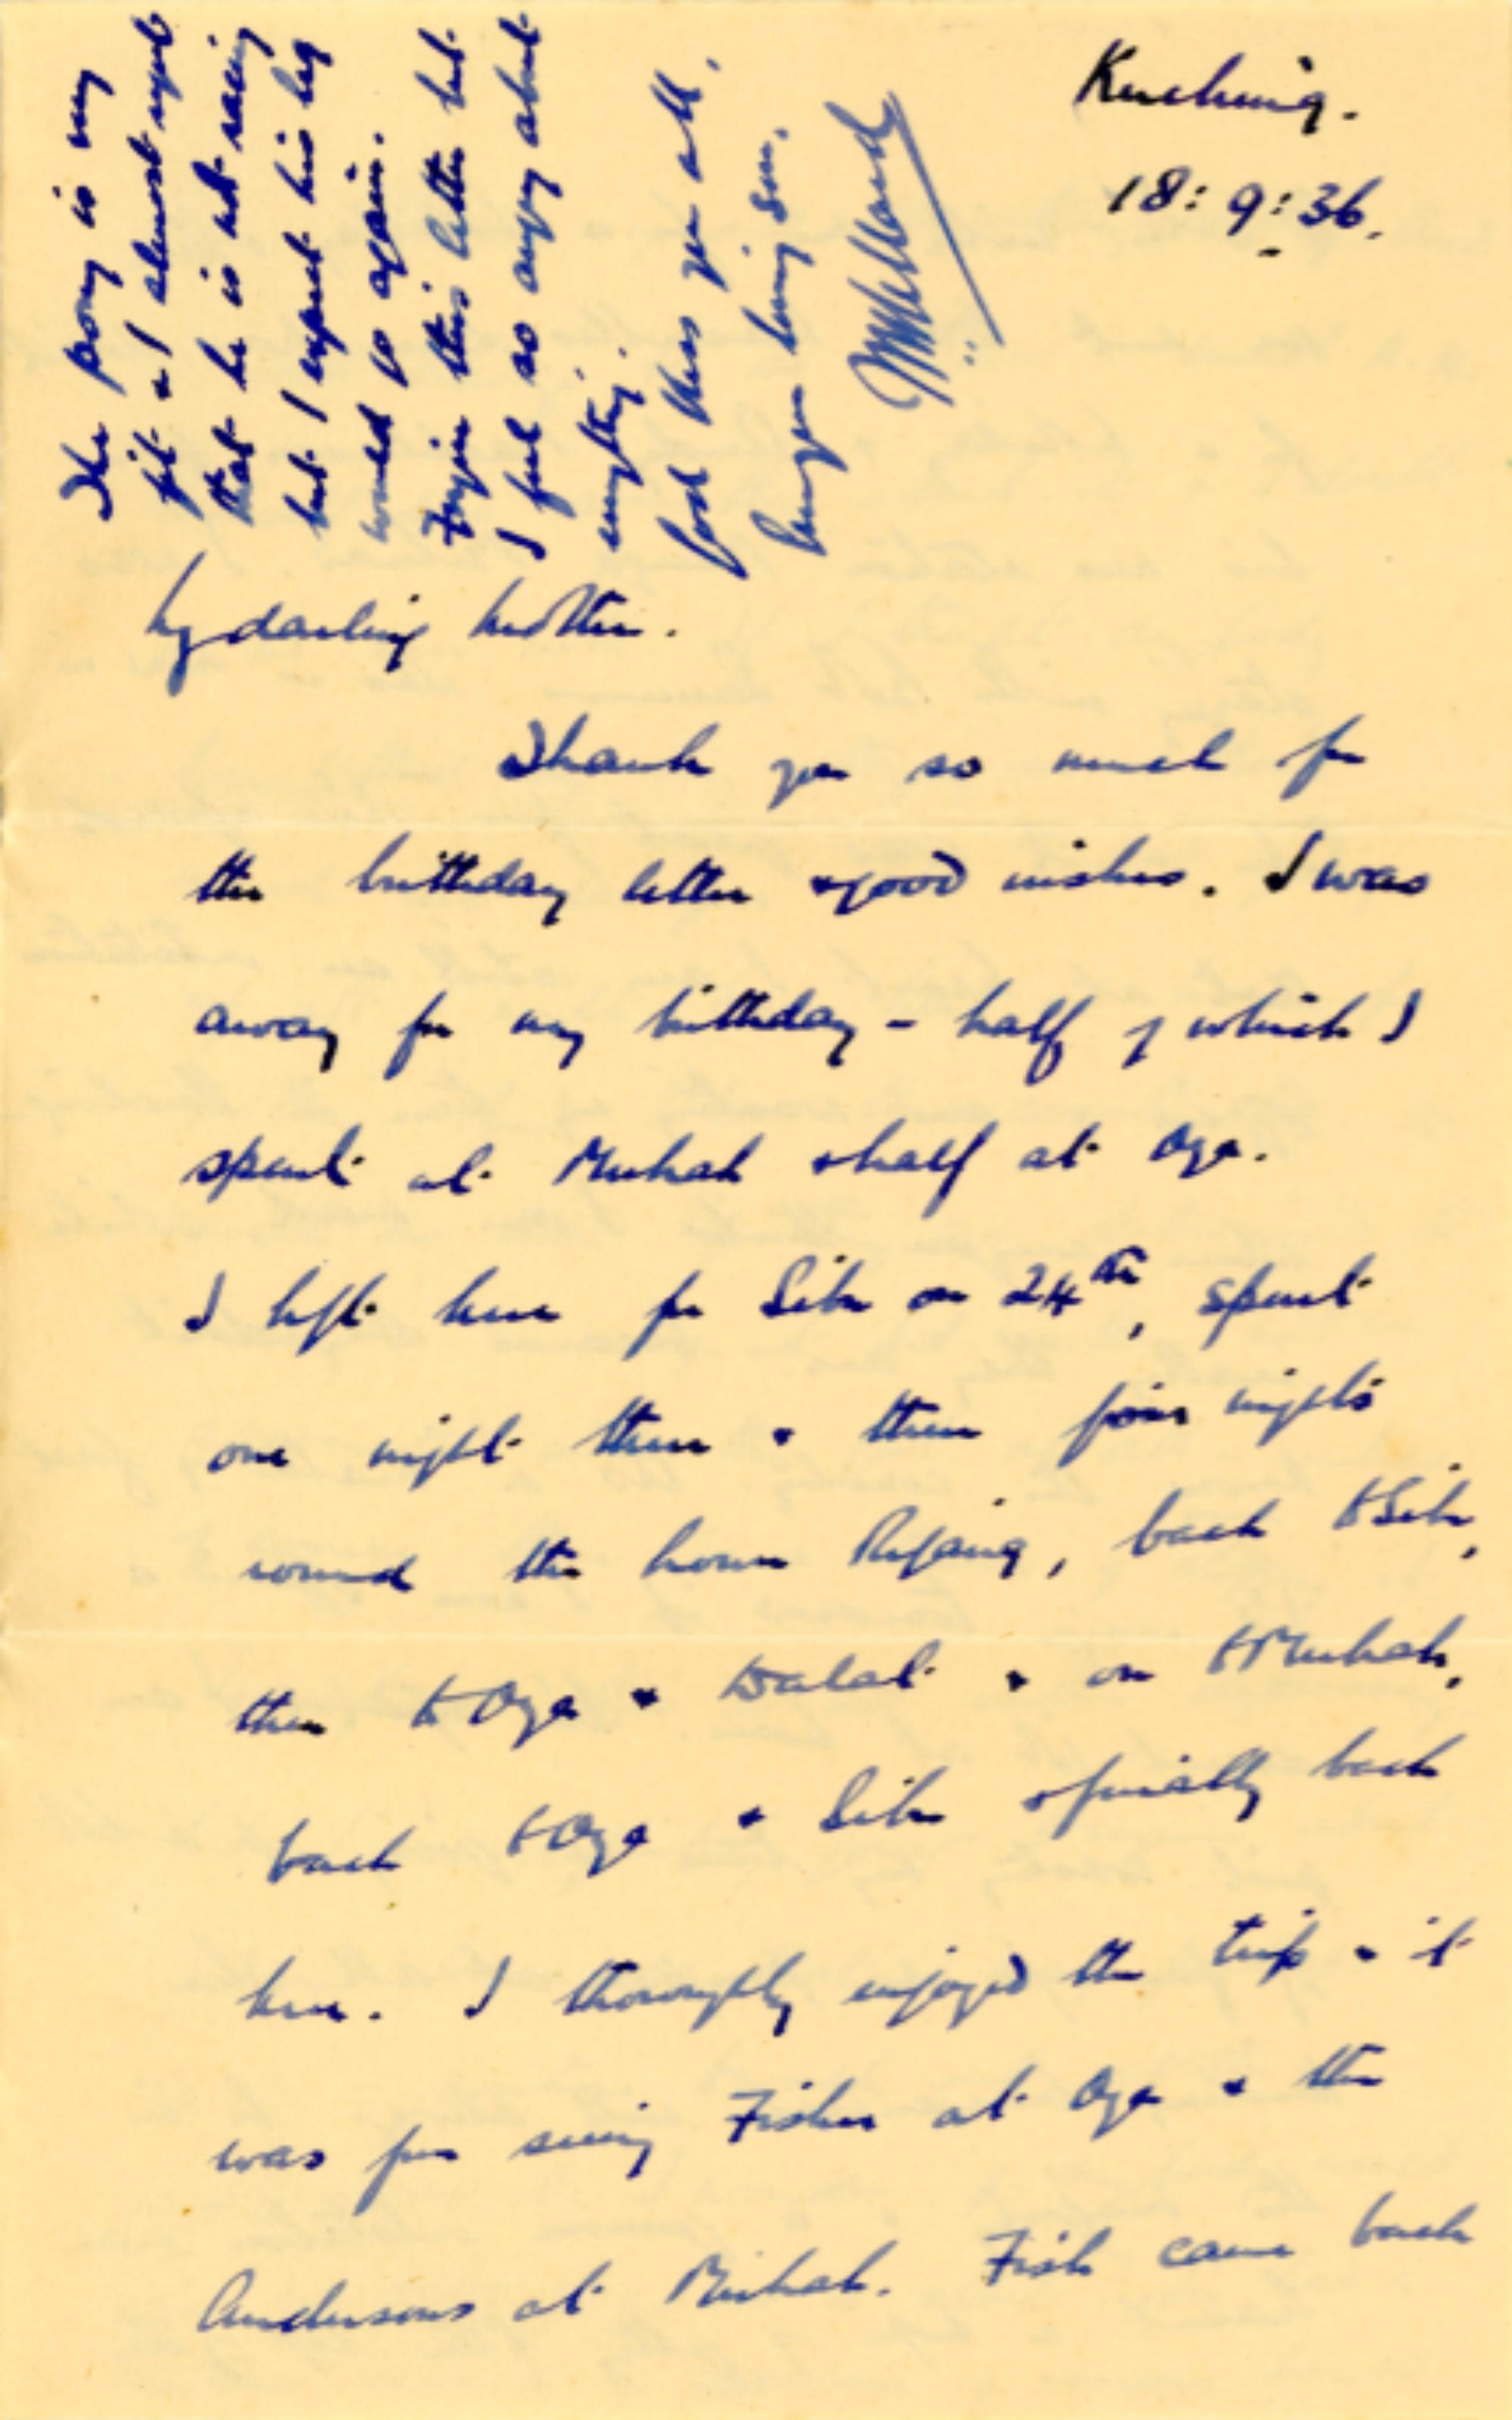 Kuching.
18:9:36.
My darling Mother.
Thank you so much for
the birthday letter & good wishes. I was
away for my birthday - half of which I
spent at Mukah & half at Oya.
I left here for Sibu on 24th, spent
one night there & then four nights
round the lower Rejang, back to Sibu,
then to Oya & Dalat & on to Mukah,
back to Oya & Sibu & finally back
here. I thoroughly enjoyed the trip & it
was fun seeing Fisher at Oya & the
Andersons at Mukah. Fish came back
The pony is very
fit & I almost regret
that he is not racing
but I expect his leg
would go again.
Forgive this letter but
I feel so angry about
everything.
God bless you all,
Ever your loving son,